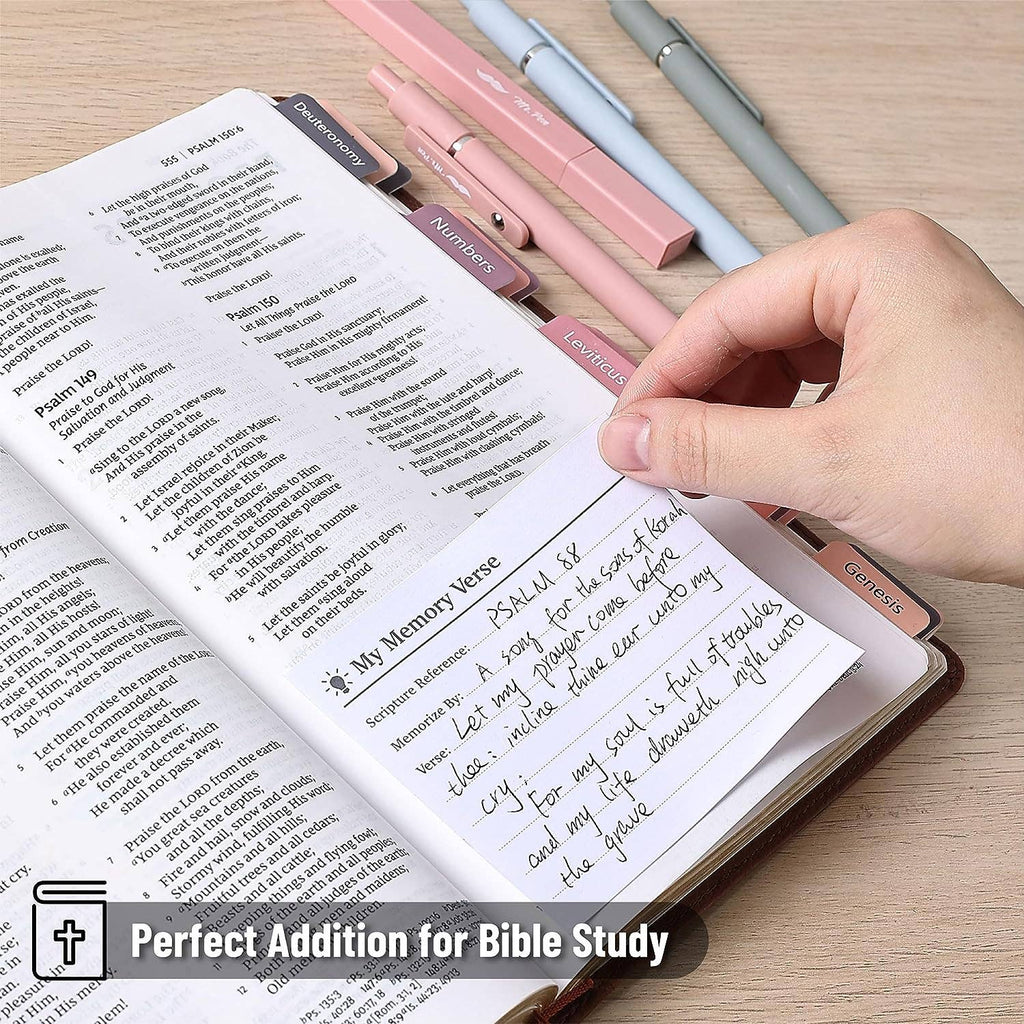 555 | PSALM 150:6
6 Let the high praises of God
be in their mouth,
And ᵃa two-edged sword in their hand,
7 To execute vengeance on the nations,
And punishments on the peoples;
8 To bind their kings with chains,
And their nobles with fetters of iron;
9 ᵃTo execute on them the
written judgment—
ᵇThis honor have all His saints.
Praise the LORD!
Psalm 150
Let All Things Praise the LORD
1 Praise ᵃthe LORD!
Praise God in His sanctuary;
Praise Him in His mighty firmament!
2 Praise Him for His mighty acts;
Praise Him according to His
excellent ᵃgreatness!
3 Praise Him with the sound
of the trumpet;
Praise Him with the lute and harp!
4 Praise Him with the timbrel and dance;
Praise Him with stringed
instruments and flutes!
5 Praise Him with loud cymbals;
Praise Him with clashing cymbals!
6 Let everything that has breath
praise the LORD.
name
one is exalted;
above the earth
heaven.
has exalted the
of His people,
praise of ᵇall His saints—
the children of Israel,
people near to Him.
Praise the LORD!
Psalm 149
Praise to God for His
Salvation and Judgment
1 Praise the LORD!
ᵃSing to the LORD a new song,
And His praise in the
assembly of saints.
2 Let Israel rejoice in their Maker;
Let the children of Zion be
joyful in their ᵃKing.
3 ᵃLet them praise His name
with the dance;
Let them sing praises to Him
with the timbrel and harp.
4 For ᵃthe LORD takes pleasure
in His people;
ᵇHe will beautify the humble
with salvation.
5 Let the saints be joyful in glory;
Let them ᵃsing aloud
on their beds.
from Creation
LORD from the heavens;
in the heights!
Him, all His angels;
Him, all His hosts!
Him, sun and moon;
Him, all you stars of light!
Praise Him, ᵃyou heavens of heavens,
And ᵇyou waters above the heavens!
5 Let them praise the name of the LORD,
For ᵃHe commanded and
they were created.
6 ᵃHe also established them
forever and ever;
He made a decree which
shall not pass away.
7 Praise the LORD from the earth,
ᵃYou great sea creatures
and all the depths;
8 Fire and hail, snow and clouds;
Stormy wind, fulfilling His word;
9 ᵃMountains and all hills;
Fruitful trees and all cedars;
Beasts and all cattle;
things and flying fowl;
of the earth and all peoples;
and all judges of the earth;
12 Both
and maidens;
Old men
children.
Deuteronomy
Numbers
Leviticus
Genesis
Mr. Pen
Mr. Pen
My Memory Verse
Scripture Reference: PSALM 88
Memorize By: A song for the sons of Korah
Verse: Let my prayer come before
thee: incline thine ear unto my
cry;
For my soul is full of troubles
and my life draweth nigh unto
the grave
Perfect Addition for Bible Study